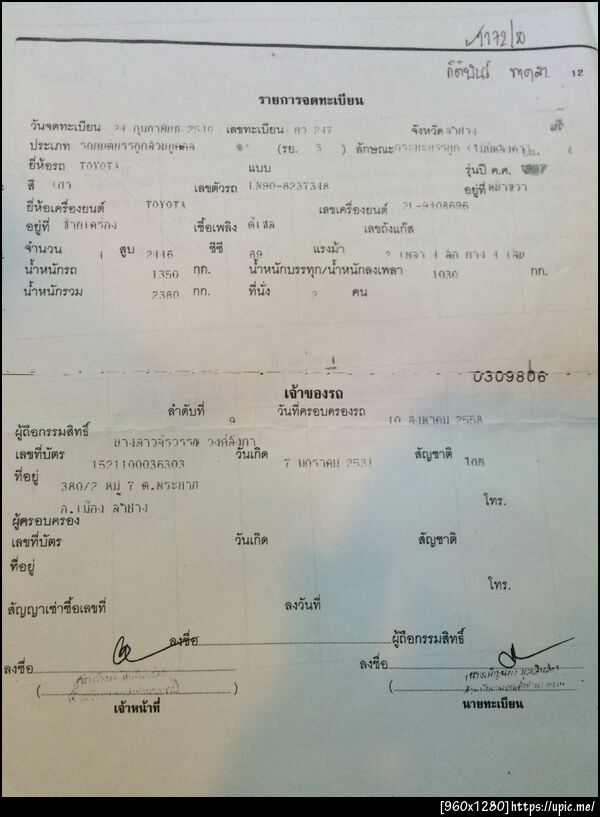 12
รายการจดทะเบียน
วันจดทะเบียน 24 กุมภาพันธ์ เลขทะเบียน 247 จังหวัด ลำปาง
ประเภท รถยนต์บรรทุกส่วนบุคคล (รย. 3 ) ลักษณะ กระบะบรรทุก
ยี่ห้อรถ TOYOTA แบบ รุ่นปี ค.ศ.
สี เทา เลขตัวรถ LN90-8237348 อยู่ที่ หน้าขวา
ยี่ห้อเครื่องยนต์ TOYOTA เลขเครื่องยนต์ 2L-9408696
อยู่ที่ ซ้ายเครื่อง เชื้อเพลิง ดีเซล เลขถังแก๊ส
จำนวน 4 สูบ 2446 ซีซี 89 แรงม้า 2 เพลา 4 ล้อ ยาง 4 เส้น
น้ำหนักรถ 1350 กก. น้ำหนักบรรทุก/น้ำหนักลงเพลา 1030 กก.
น้ำหนักรวม 2380 กก. ที่นั่ง 2 คน
0309806
เจ้าของรถ
ลำดับที่ 9 วันที่ครอบครองรถ 10 สิงหาคม 2558
ผู้ถือกรรมสิทธิ์ นางสาว
เลขที่บัตร 1521100036303 วันเกิด 7 มกราคม 2531 สัญชาติ ไทย
ที่อยู่ 380/2 หมู่ 7 ต.พระบาท
อ.เมือง ลำปาง โทร.
ผู้ครอบครอง
เลขที่บัตร วันเกิด สัญชาติ
ที่อยู่
โทร.
สัญญาเช่าซื้อเลขที่ ลงวันที่
ลงชื่อ ผู้ถือกรรมสิทธิ์
ลงชื่อ ลงชื่อ
( ) ( )
เจ้าหน้าที่ นายทะเบียน
[960x1280]https://upic.me/